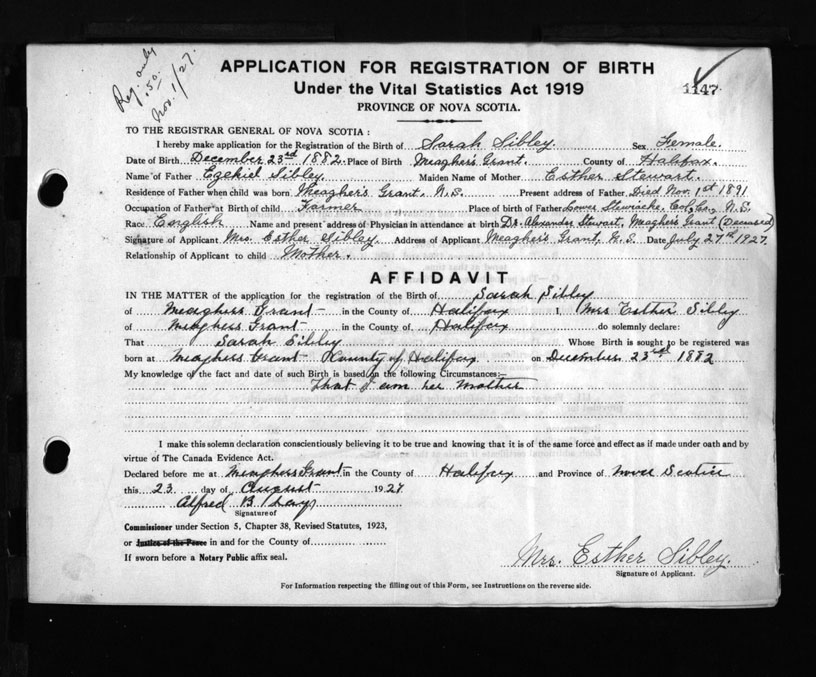 Reg. only
.50
Nov. 1/27.
APPLICATION FOR REGISTRATION OF BIRTH
Under the Vital Statistics Act 1919
1147
PROVINCE OF NOVA SCOTIA.
TO THE REGISTRAR GENERAL OF NOVA SCOTIA:
I hereby make application for the Registration of the Birth of Sarah Sibley. Sex Female.
Date of Birth December 23rd 1882. Place of Birth Meagher's Grant. County of Halifax.
Name of Father Ezekiel Sibley. Maiden Name of Mother Esther Stewart.
Residence of Father when child was born Meagher's Grant. N.S. Present address of Father Died Nov. 1st 1891
Occupation of Father at Birth of child Farmer Place of birth of Father Lower Stewiacke, Col. Co., N.S.
Race English Name and present address of Physician in attendance at birth Dr. Alexander Stewart, Meaghers Grant (Deceased)
Signature of Applicant Mrs. Esther Sibley. Address of Applicant Meagher's Grant, N.S. Date July 27th 1927.
Relationship of Applicant to child Mother.
AFFIDAVIT
IN THE MATTER of the application for the registration of the Birth of Sarah Sibley
of Meaghers Grant in the County of Halifax I, Mrs Esther Sibley
of Meaghers Grant in the County of Halifax do solemnly declare:
That Sarah Sibley Whose Birth is sought to be registered was
born at Meaghers Grant County of Halifax on December 23rd 1882
My knowledge of the fact and date of such Birth is based on the following Circumstances:—
That I am her Mother
I make this solemn declaration conscientiously believing it to be true and knowing that it is of the same force and effect as if made under oath and by
virtue of The Canada Evidence Act.
Declared before me at Meaghers Grant in the County of Halifax and Province of Nova Scotia
this 23 day of August 1927
Alfred B
Signature of
Commissioner under Section 5, Chapter 38, Revised Statutes, 1923,
or Justice of the Peace in and for the County of
If sworn before a Notary Public affix seal.
Mrs. Esther Sibley.
Signature of Applicant.
For Information respecting the filling out of this Form, see Instructions on the reverse side.